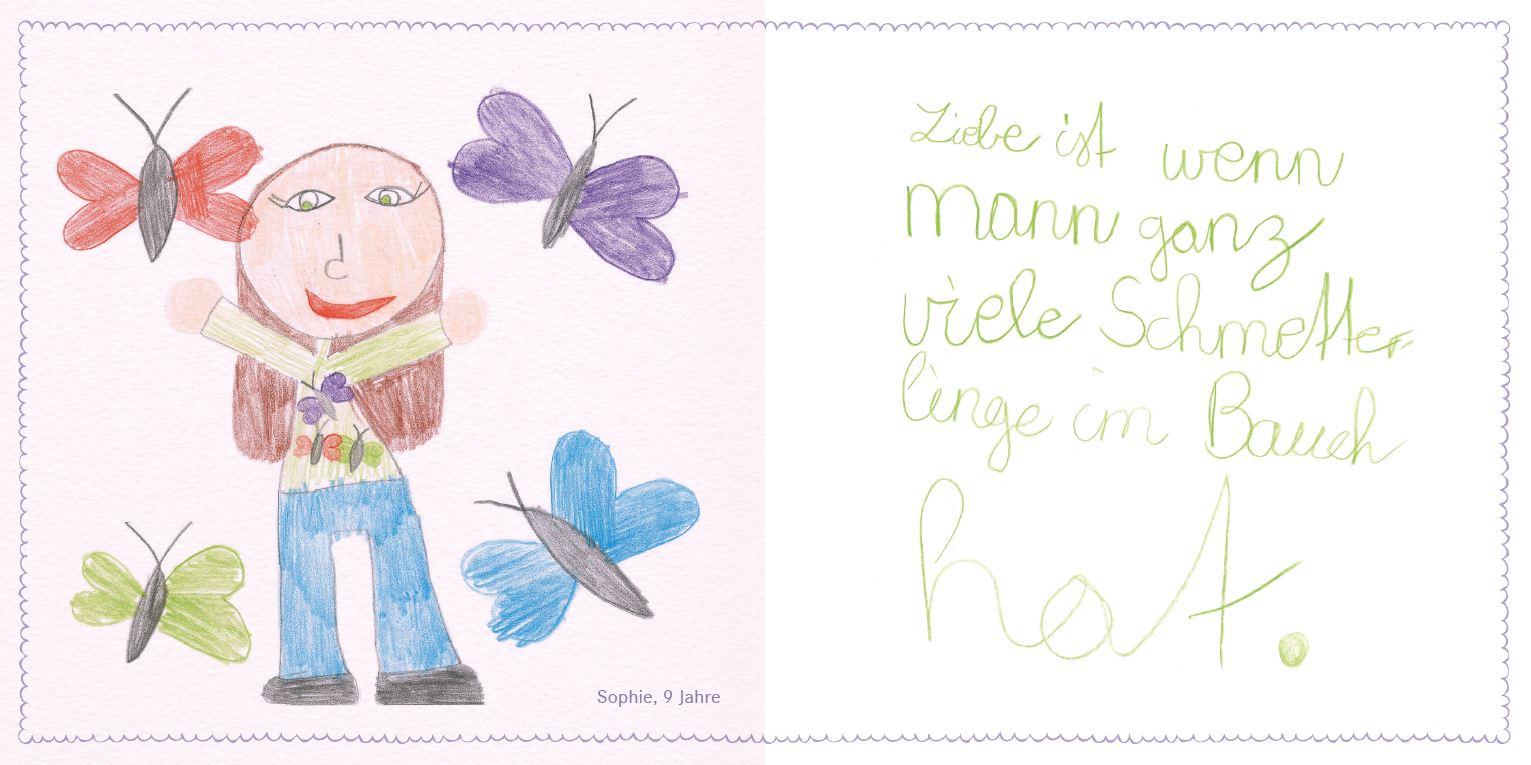 Sophie, 9 Jahre
Liebe ist wenn
Mann ganz
viele Schmetter-
linge im Bauch
hat.